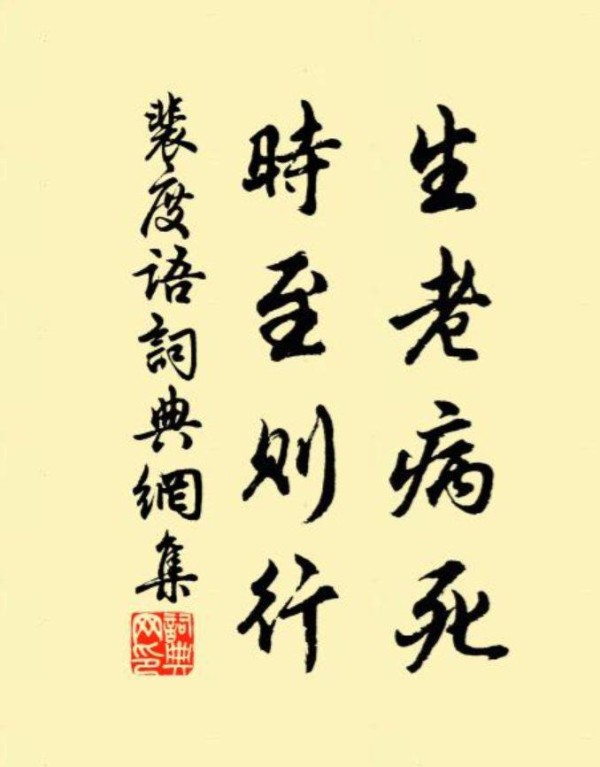 生老病死
時至則行
裴度語詞典網集
詞典
网印